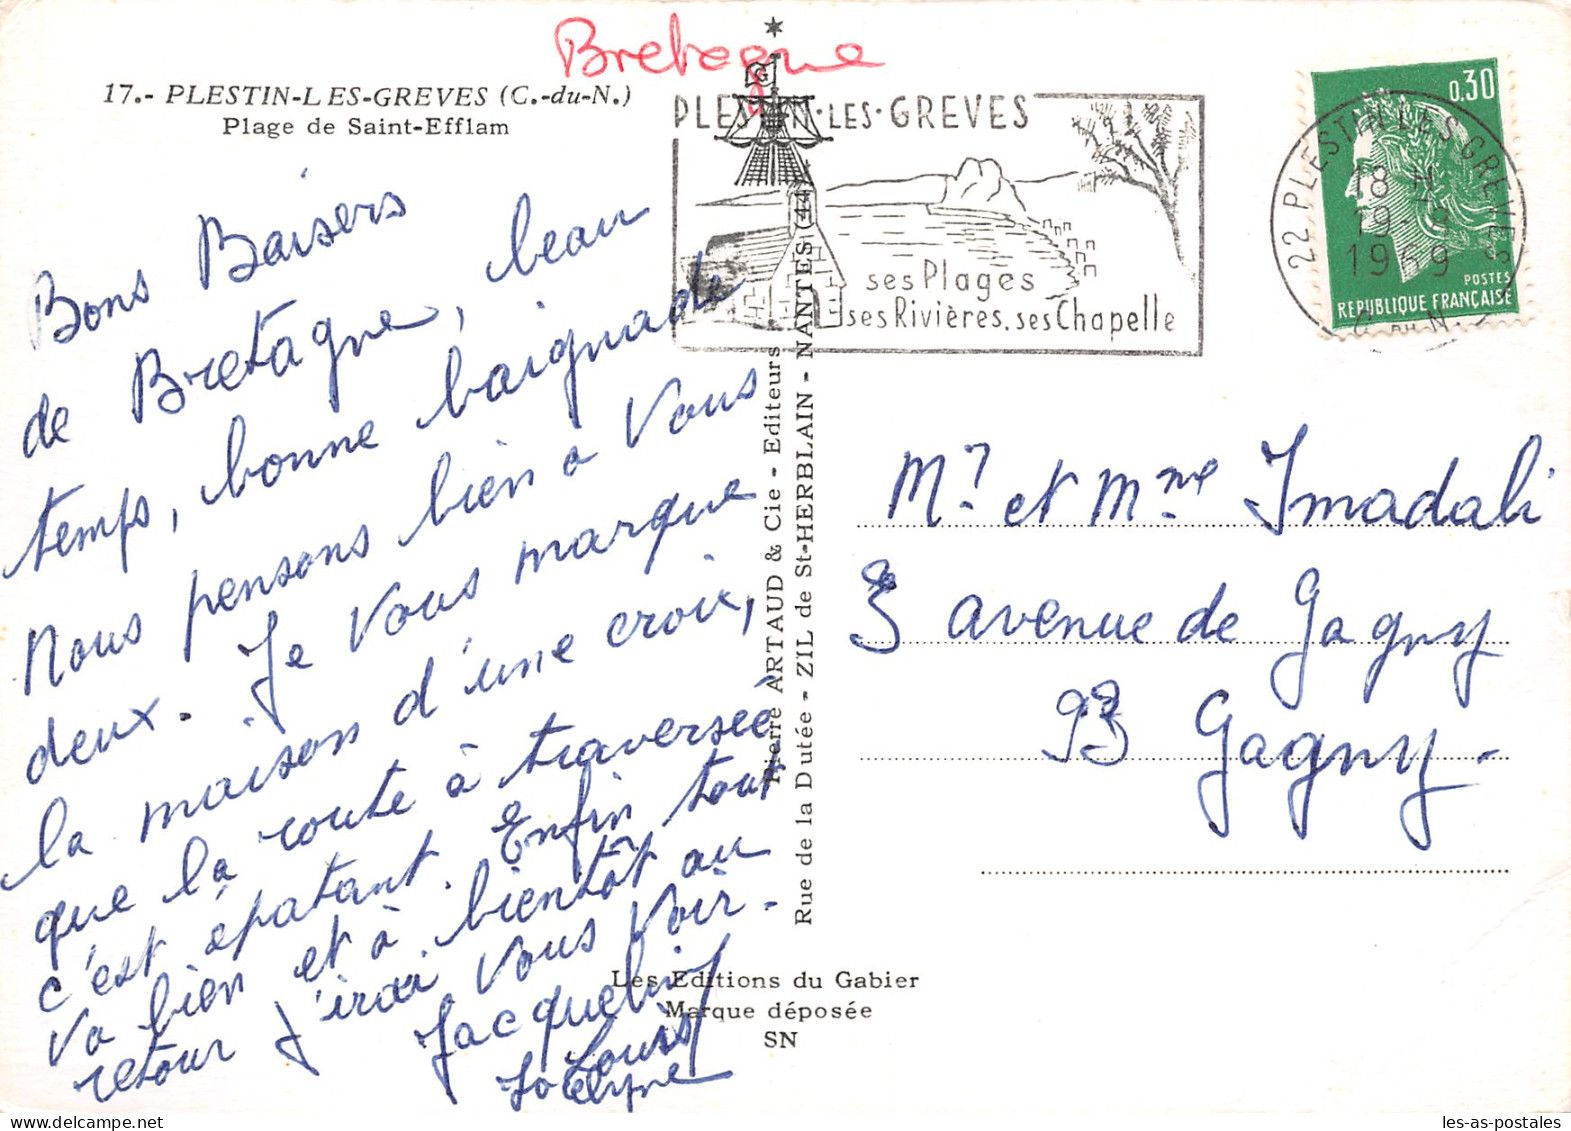 Bretagne
17.- PLESTIN-LES-GREVES (C.-du-N.)
Plage de Saint-Efflam
Bons Baisers
de Bretagne, beau
temps, bonne baignade
Nous pensons bien a Vous
deux. Je Vous marque
la maison d'une croix,
que la route à traversée
c'est épatant. Enfin tout
Va bien et à bientôt au
retour j'irai Vous Voir.
Jacqueline
Louis
Jocelyne
Pierre ARTAUD & Cie - Editeurs
Rue de la Dutée - ZIL de St-HERBLAIN - NANTES (44
Les Editions du Gabier
Marque déposée
SN
G
PLESTIN·LES·GREVES
ses Plages
ses Rivières, ses Chapelle
0,30
POSTES
REPUBLIQUE FRANÇAISE
22 PLESTIN LES GREVES
18 H
19-8
1969
C. DU N.
Mr et Mme Imadali
3 avenue de Gagny
93 Gagny-
les-as-postales